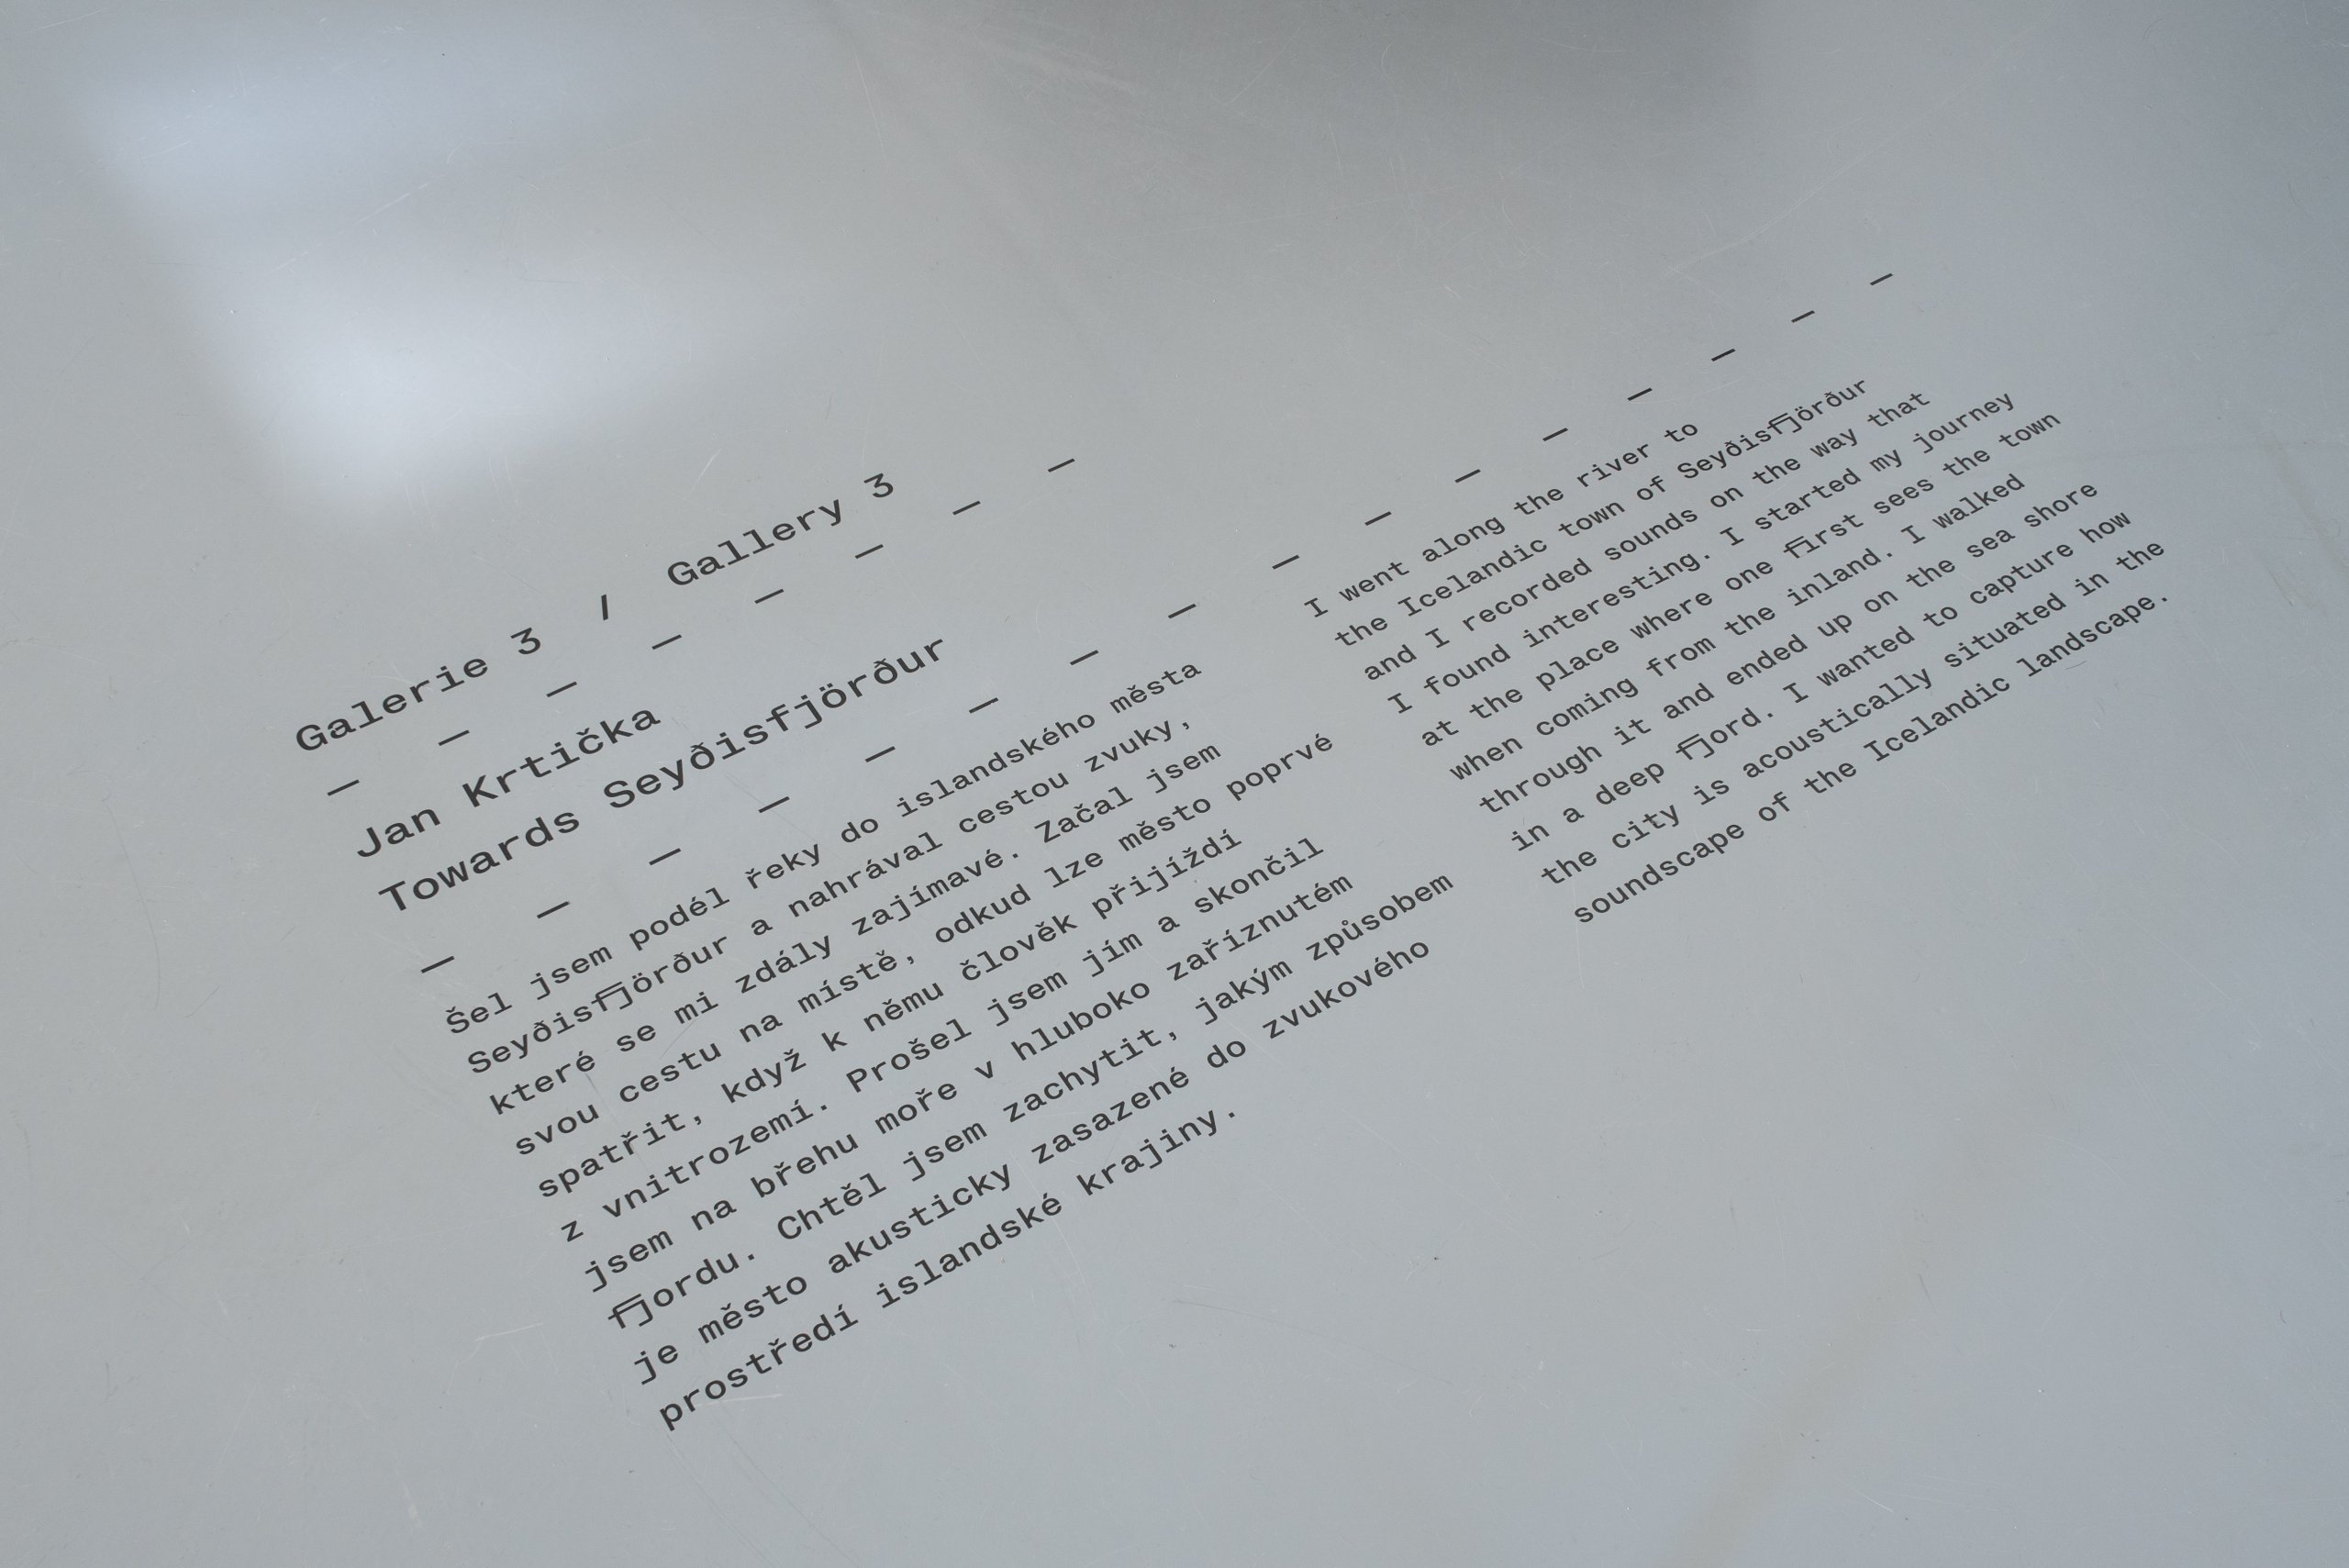 Galerie 3 / Gallery 3
— — — — — — — —
Jan Krtička
Towards Seyðisfjörður
— — — — — — — — — — — — — — — —
Šel jsem podél řeky do islandského města
Seyðisfjörður a nahrával cestou zvuky,
které se mi zdály zajímavé. Začal jsem
svou cestu na místě, odkud lze město poprvé
spatřit, když k němu člověk přijíždí
z vnitrozemí. Prošel jsem jím a skončil
jsem na břehu moře v hluboko zaříznutém
fjordu. Chtěl jsem zachytit, jakým způsobem
je město akusticky zasazené do zvukového
prostředí islandské krajiny.
I went along the river to
the Icelandic town of Seyðisfjörður
and I recorded sounds on the way that
I found interesting. I started my journey
at the place where one first sees the town
when coming from the inland. I walked
through it and ended up on the sea shore
in a deep fjord. I wanted to capture how
the city is acoustically situated in the
soundscape of the Icelandic landscape.